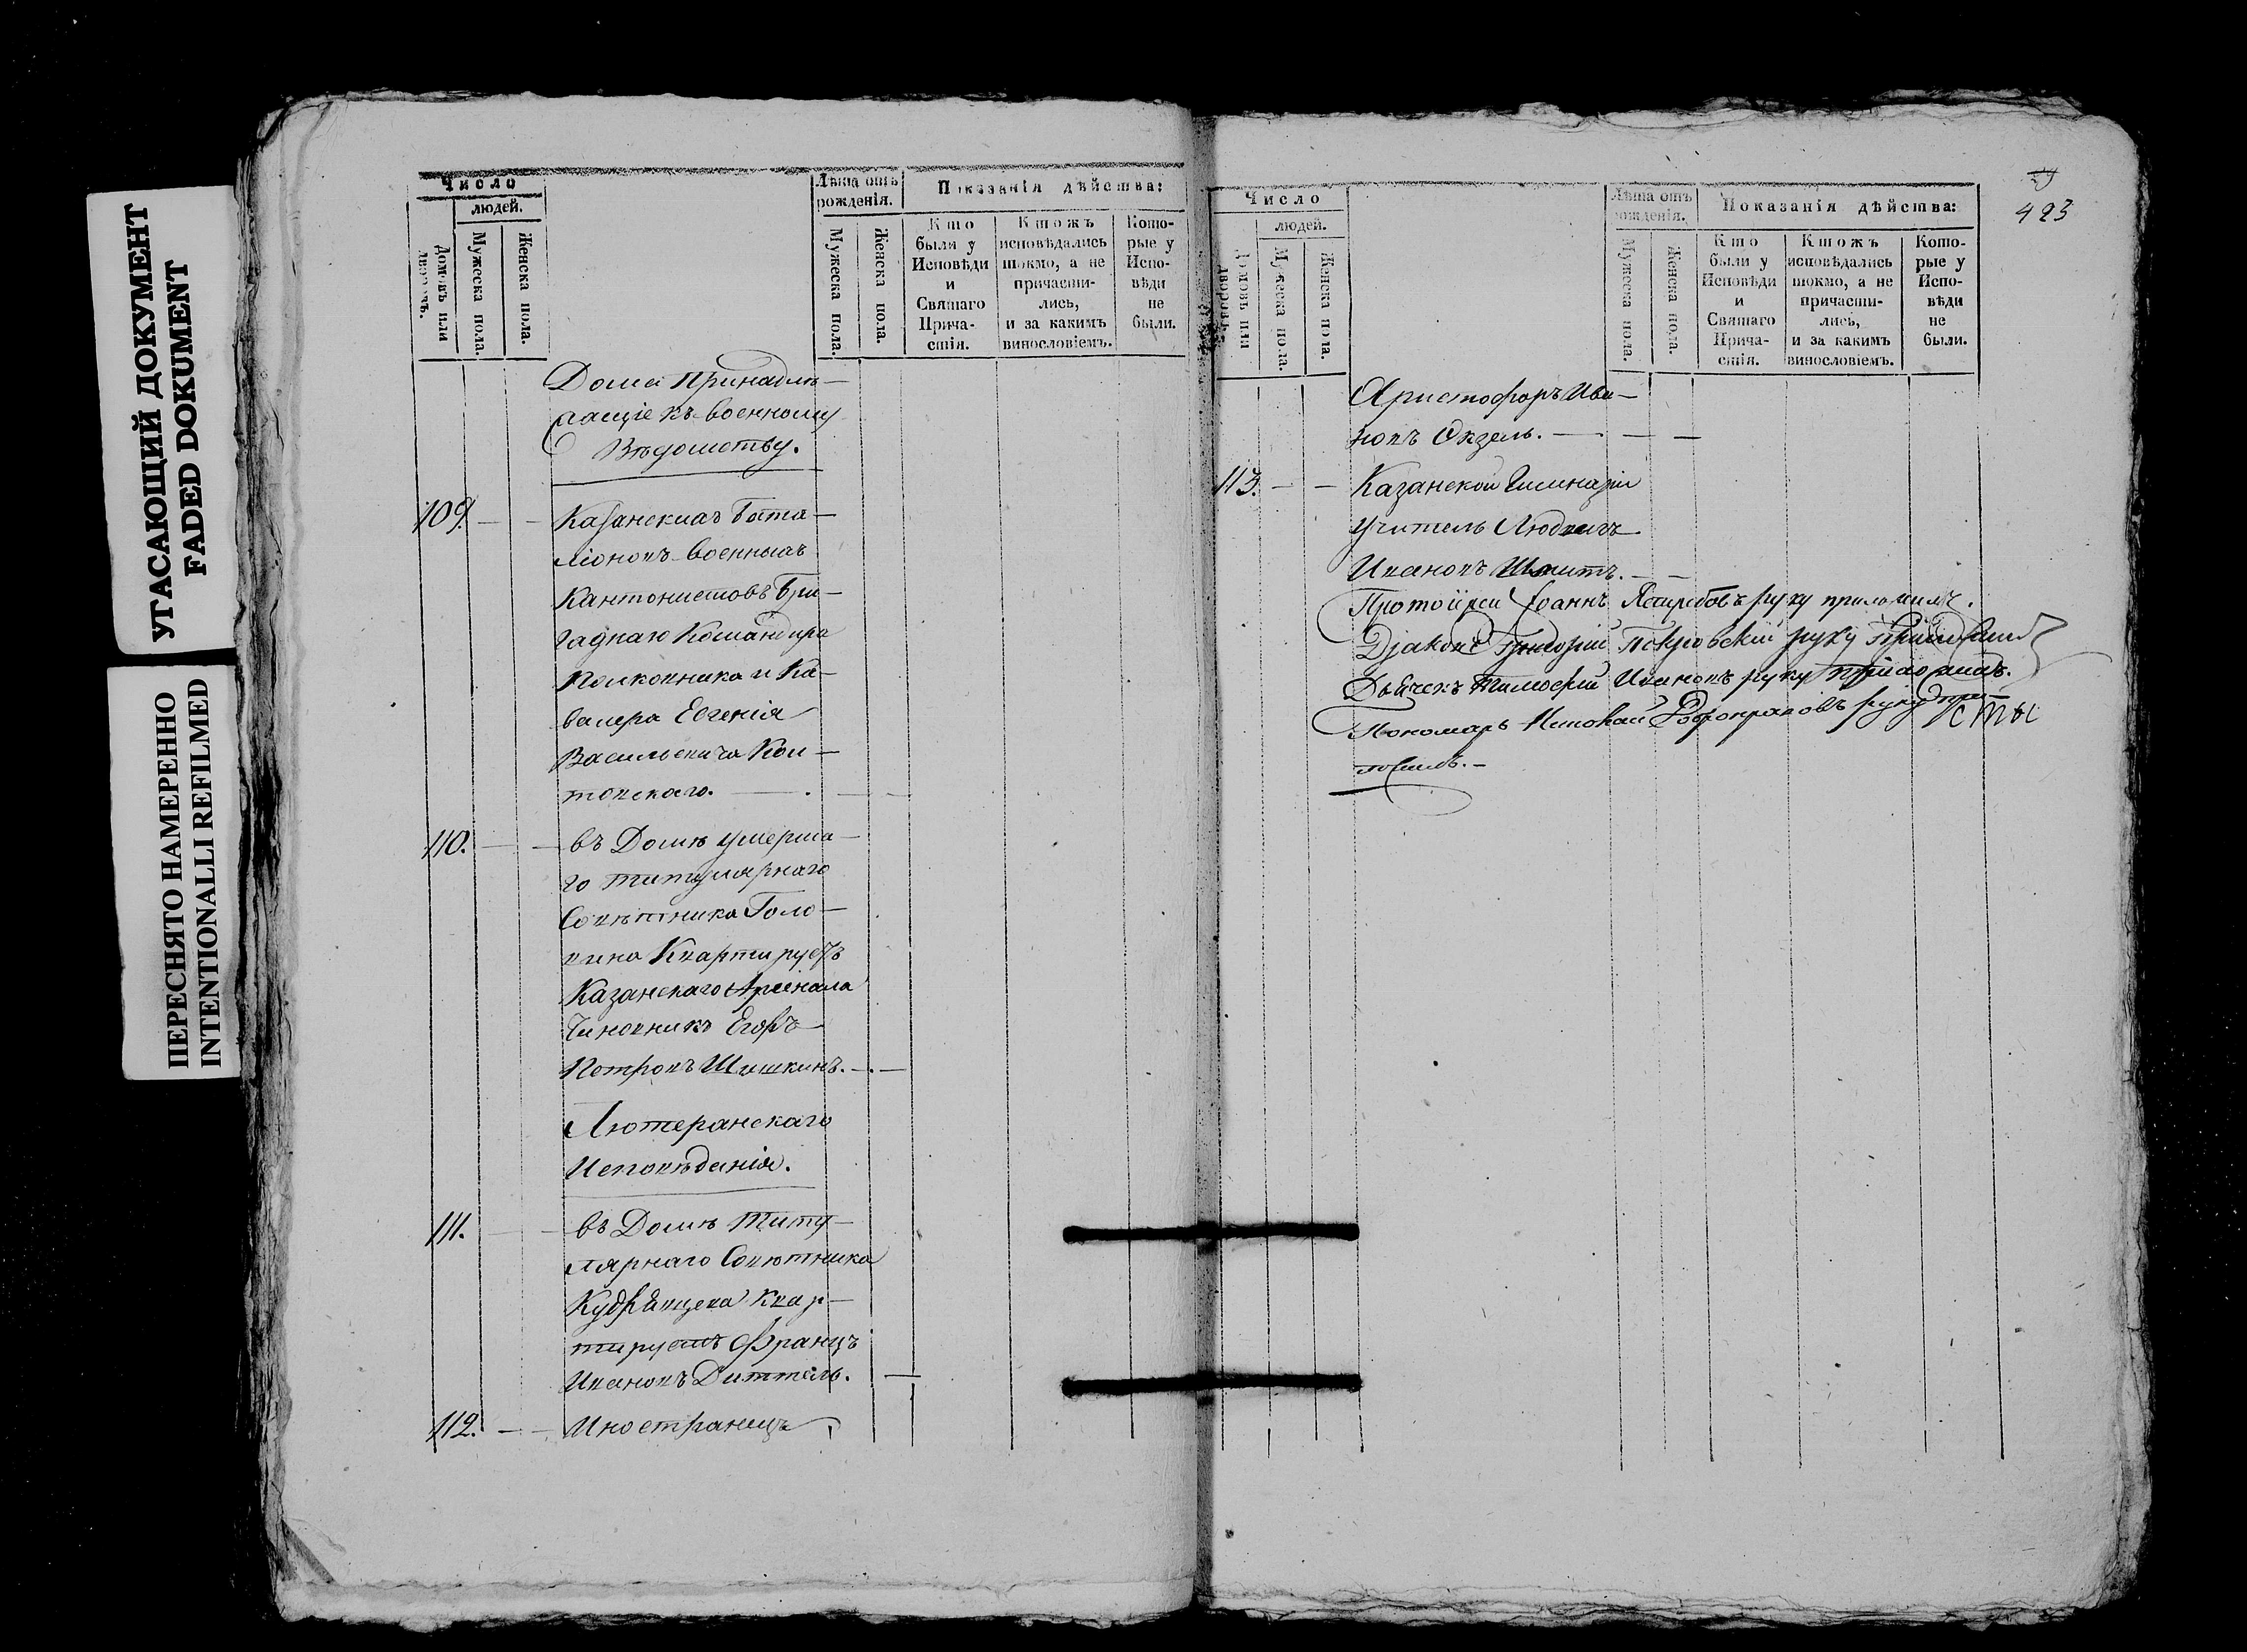 УГАСАЮЩИЙ ДОКУМЕНТ
FADED DOKUMENT
ПЕРЕСНЯТО НАМЕРЕННО
INTENTIONALLI REFILMED
Число
людей.
Домовъ или дворовъ.
Мужеска пола.
Женска пола.
Лѣта отъ рожденія.
Мужеска пола.
Женска пола.
Показанія дѣйства:
Кто были у Исповѣди и Святаго Прича-стія.
Ктожъ исповѣдались токмо, а не причасти-лись, и за какимъ винословіемъ.
Кото-рые у Испо-вѣди не были.
Домы принадле-
жащіе къ военному
Вѣдомству.
109. Казанскихъ бата-
ліоновъ военныхъ
Кантонистовъ Бри-
гаднаго Командира
Полковника и Ка-
валера Евгенія
Васильевича
товскаго.
110. въ Домѣ умерша-
го титулярнаго
Совѣтника Голо-
вина Квартируетъ
Казанскаго Арсенала
Чиновникъ Егоръ
Петровъ Шишкинъ.
Лютеранскаго
Исповѣданія.
111. въ Домѣ Титу-
лярнаго Совѣтника
Кудрявцева Квар-
тируетъ Францъ
Ивановъ Диттель.
112. Иностранецъ
423
Число
людей.
Домовъ или дворовъ.
Мужеска пола.
Женска пола.
Лѣта отъ рожденія.
Мужеска пола.
Женска пола.
Показанія дѣйства:
Кто были у Исповѣди и Святаго Прича-стія.
Ктожъ исповѣдались токмо, а не причасти-лись, и за какимъ винословіемъ.
Кото-рые у Испо-вѣди не были.
Аристофоръ Ива-
новъ Окзель.
113. Казанской Гимназіи
учитель Людвигъ
Ивановъ Шмитъ.
Протоіерей Іоаннъ Ястребовъ руку приложилъ.
Діаконъ Григорій Покровскій руку приложилъ
Дьячекъ Тимофей Ивановъ руку приложилъ.
Пономарь руку при-
ложилъ.